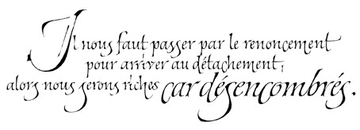 Il nous faut passer par le renoncement
pour arriver au détachement,
alors nous serons riches car désencombrés.